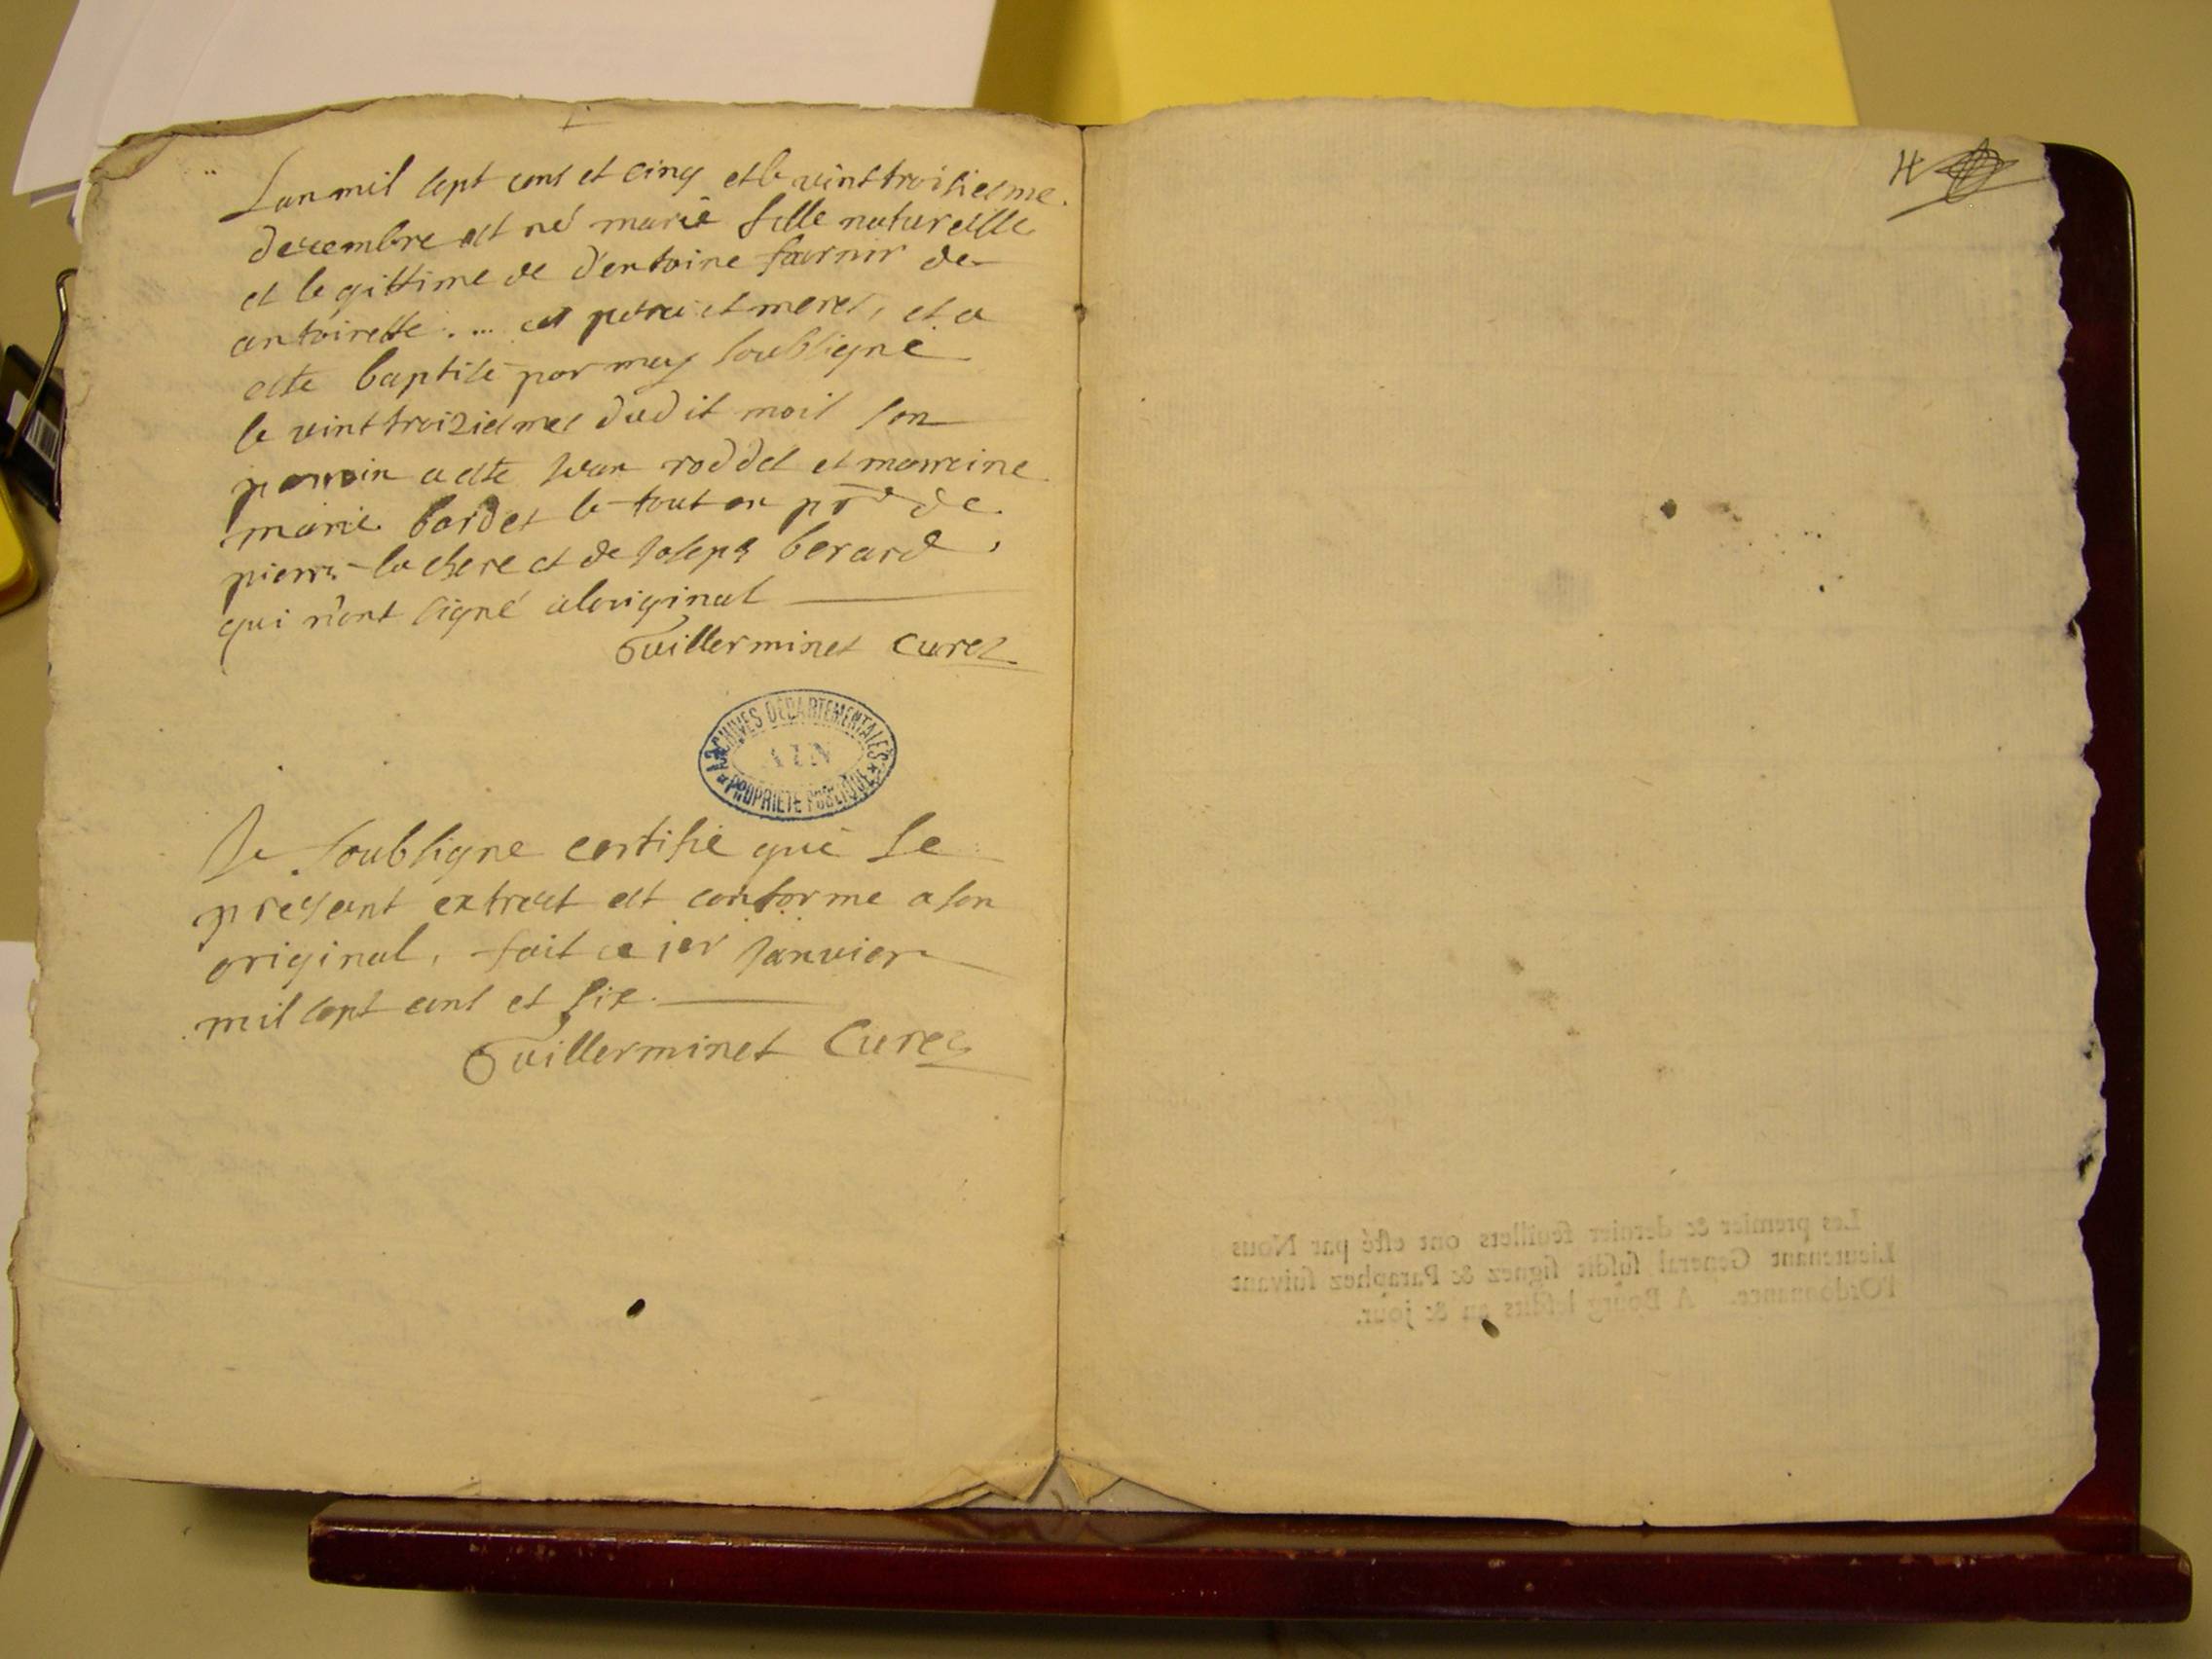 Lan mil sept cens et cinq et le vint troisiesme
decembre est né marie fille naturelle
et legittime de d'entoine fournir de
antoinette .... et meres, et a
este baptisé par moy soubsigné
le vint troiziesmes dudit mois son
parrain a este Jean roddet et marreine
marie bordet le tout en pnde de
pierre la chere et de Joseph berard,
qui n'ont signé aloriginal
Guillerminet Curez
ARCHIVES DEPARTEMENTALES
AIN
PROPRIETE PUBLIQUE
Je soubsigne certifie que le
presant extract est conforme a son
original, fait ce ier Janvier
mil sept cens et six.
Guillerminet Curez
Les premier & dernier feuillets ont esté par Nous
Lieutenant General susdit signez & Paraphez suivant
l'Ordonnance. A Bourg lesdits an & jour.